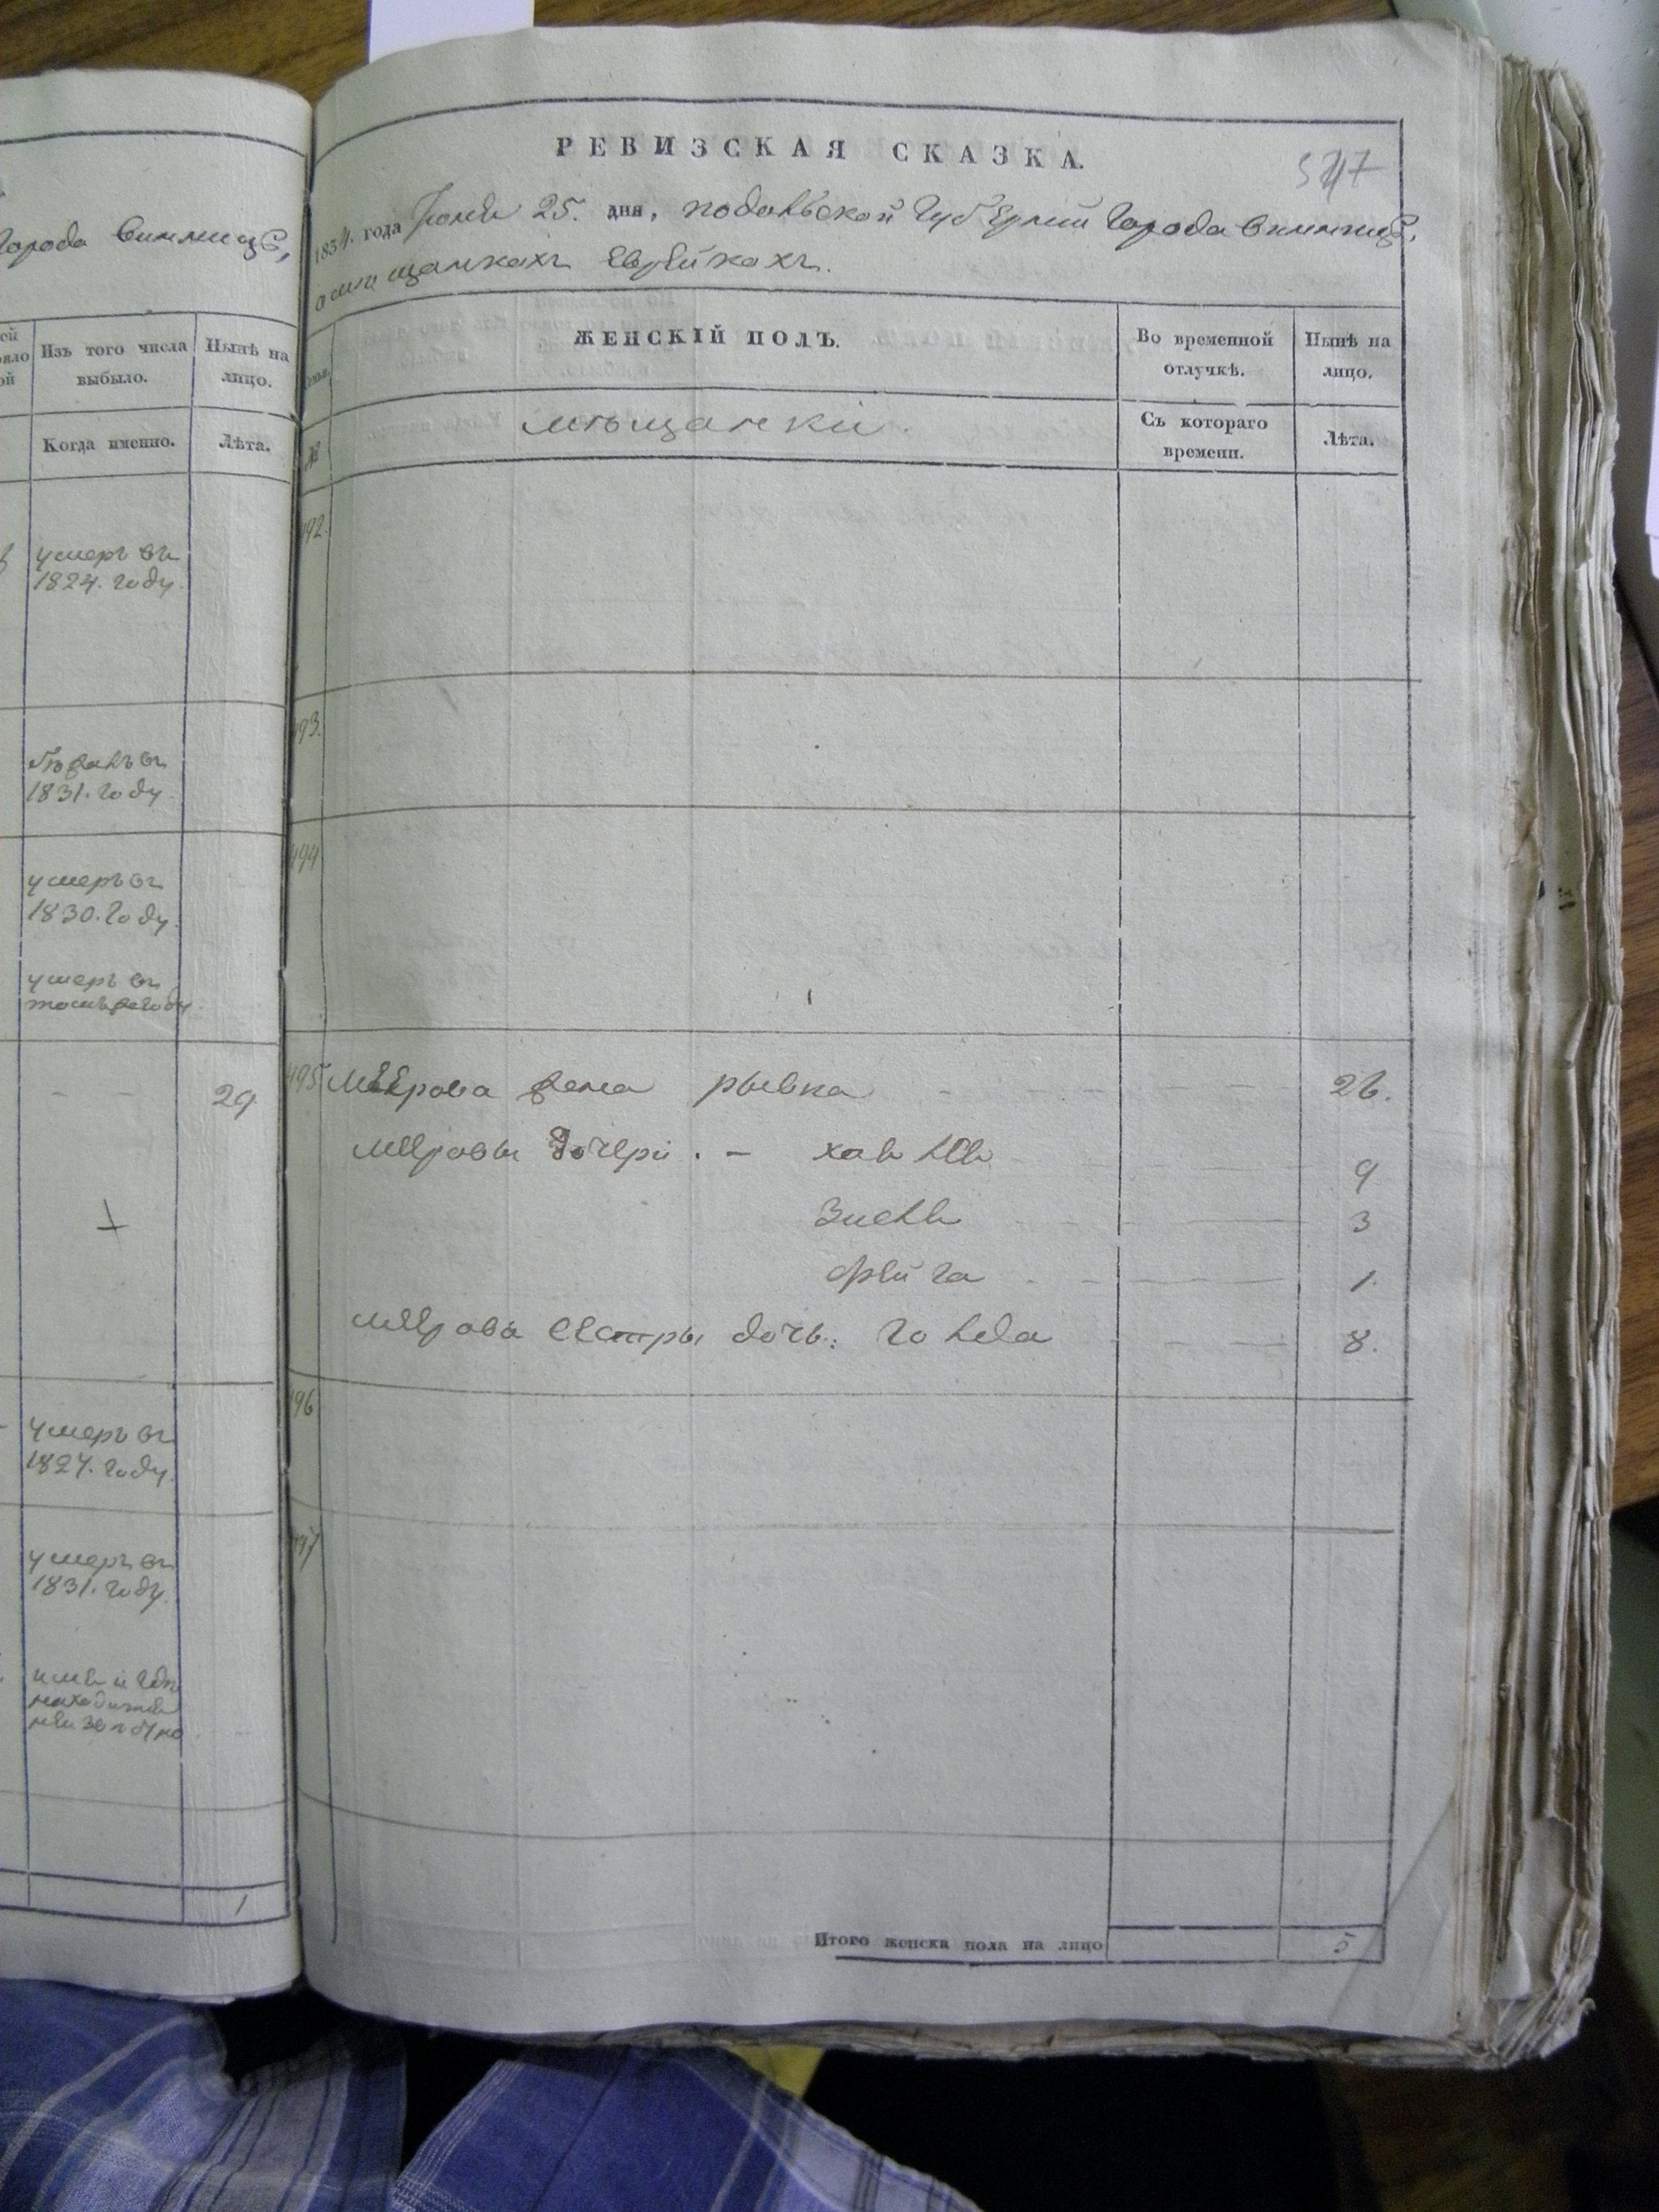 Города Винницѣ,
Изъ того числа выбыло.
Нынѣ на лицо.
Когда именно.
Лѣта.
умеръ въ
1824. году.
1831. году.
умеръ въ
1830. году
умеръ въ
29.
умеръ въ
1827. году.
умеръ въ
1831. году.
1
РЕВИЗСКАЯ СКАЗКА.
547
1834. года Іюня 25. дня, подольской Губерніи Города Винницѣ,
о мѣщанкахъ Еврейкахъ.
ЖЕНСКІЙ ПОЛЪ.
Во временной отлучкѣ.
Нынѣ на лицо.
№
мѣщанки.
Съ котораго времени.
Лѣта.
492.
493.
494
495 Меерова жена рывка 26.
меровы дочери. - хавлея 9
Зисля 3
фейга 1.
мерова сестры дочь: голда 8.
496
497
Итого женска пола на лицо 5